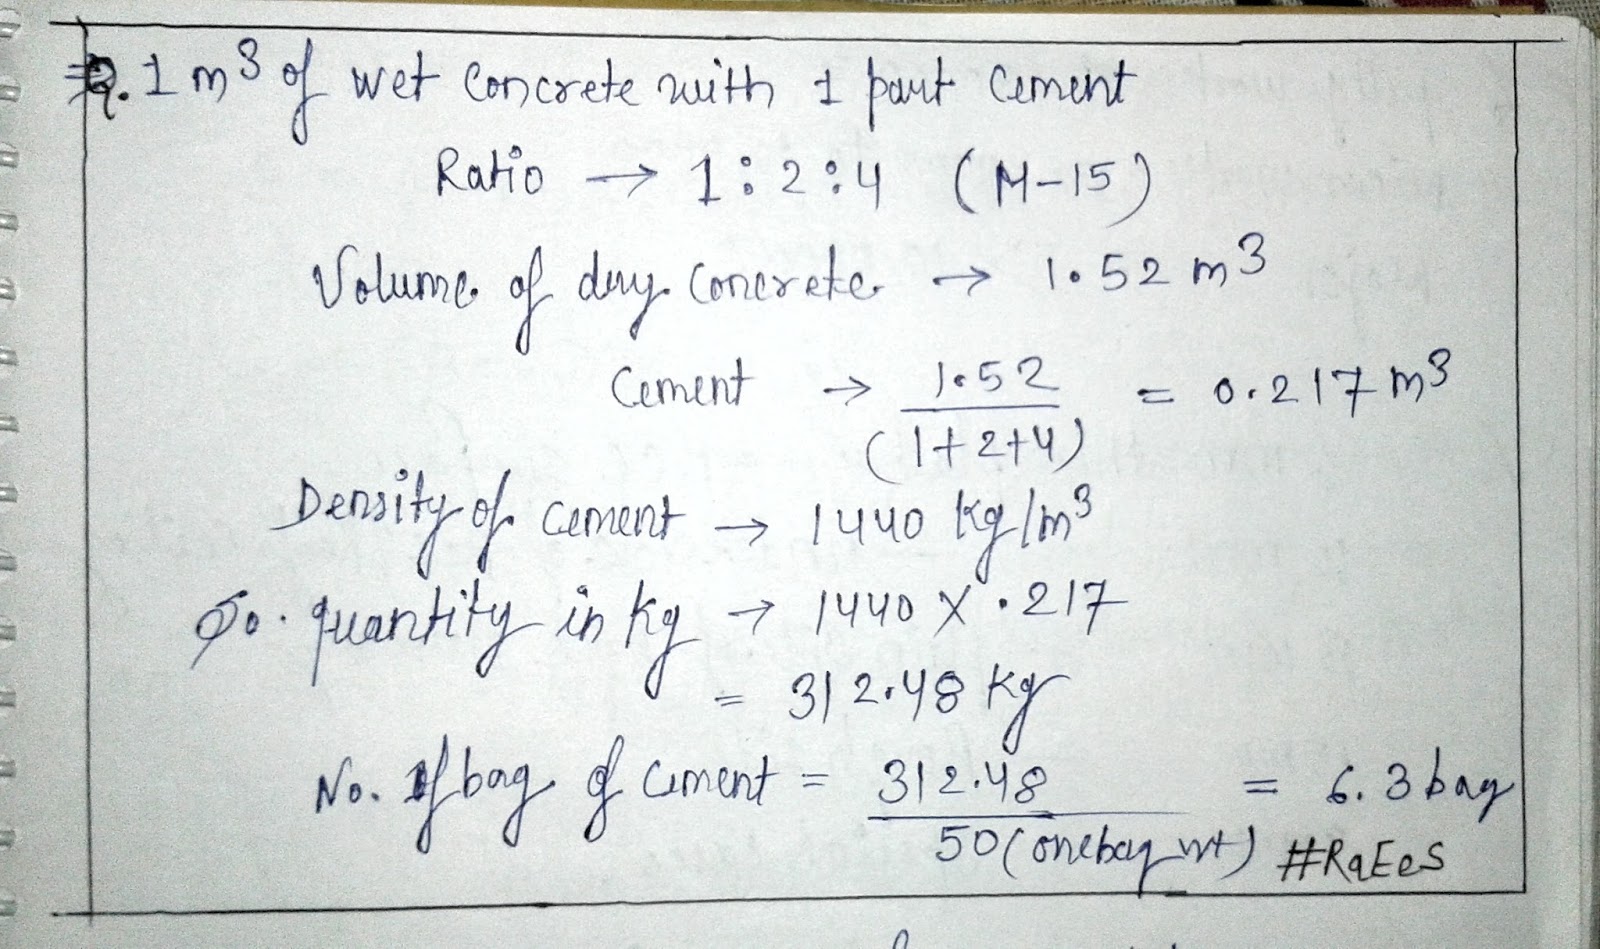 ⇒Q. 1 m³ of wet Concrete with 1 part Cement
Ratio → 1:2:4 (M-15)
Volume of dry Concrete → 1.52 m³
Cement → 1.52 / (1+2+4) = 0.217 m³
Density of cement → 1440 kg/m³
So. quantity in kg → 1440 X .217
= 312.48 kg
No. of bag of Cement = 312.48 / 50 (one bag wt) = 6.3 bag
#RaEeS